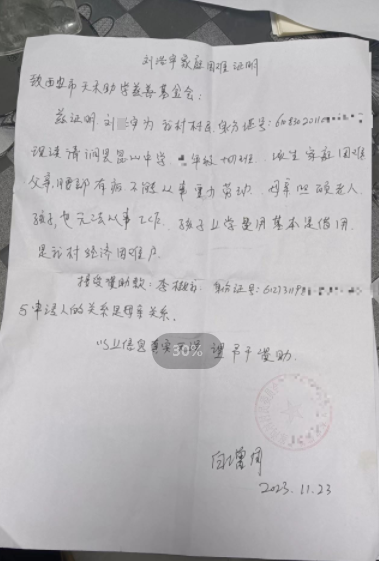 刘浩宇家庭困难证明
致西安市天天助学慈善基金会:
兹证明 刘 为 我村村民 身份证号: 610830201108
现读清涧县昆山中学, 年级 班, 该生家庭困难
父亲腰部有病不能从事重力劳动, 母亲照顾老人
孩子也无法从事工作, 孩子上学费用基本是借用
是我村经济困难户.
接受援助款: 身份证号: 6127311981
与申请人的关系是母亲关系.
以上信息真实 望予于援助.
30%
白增周
2023.11.23